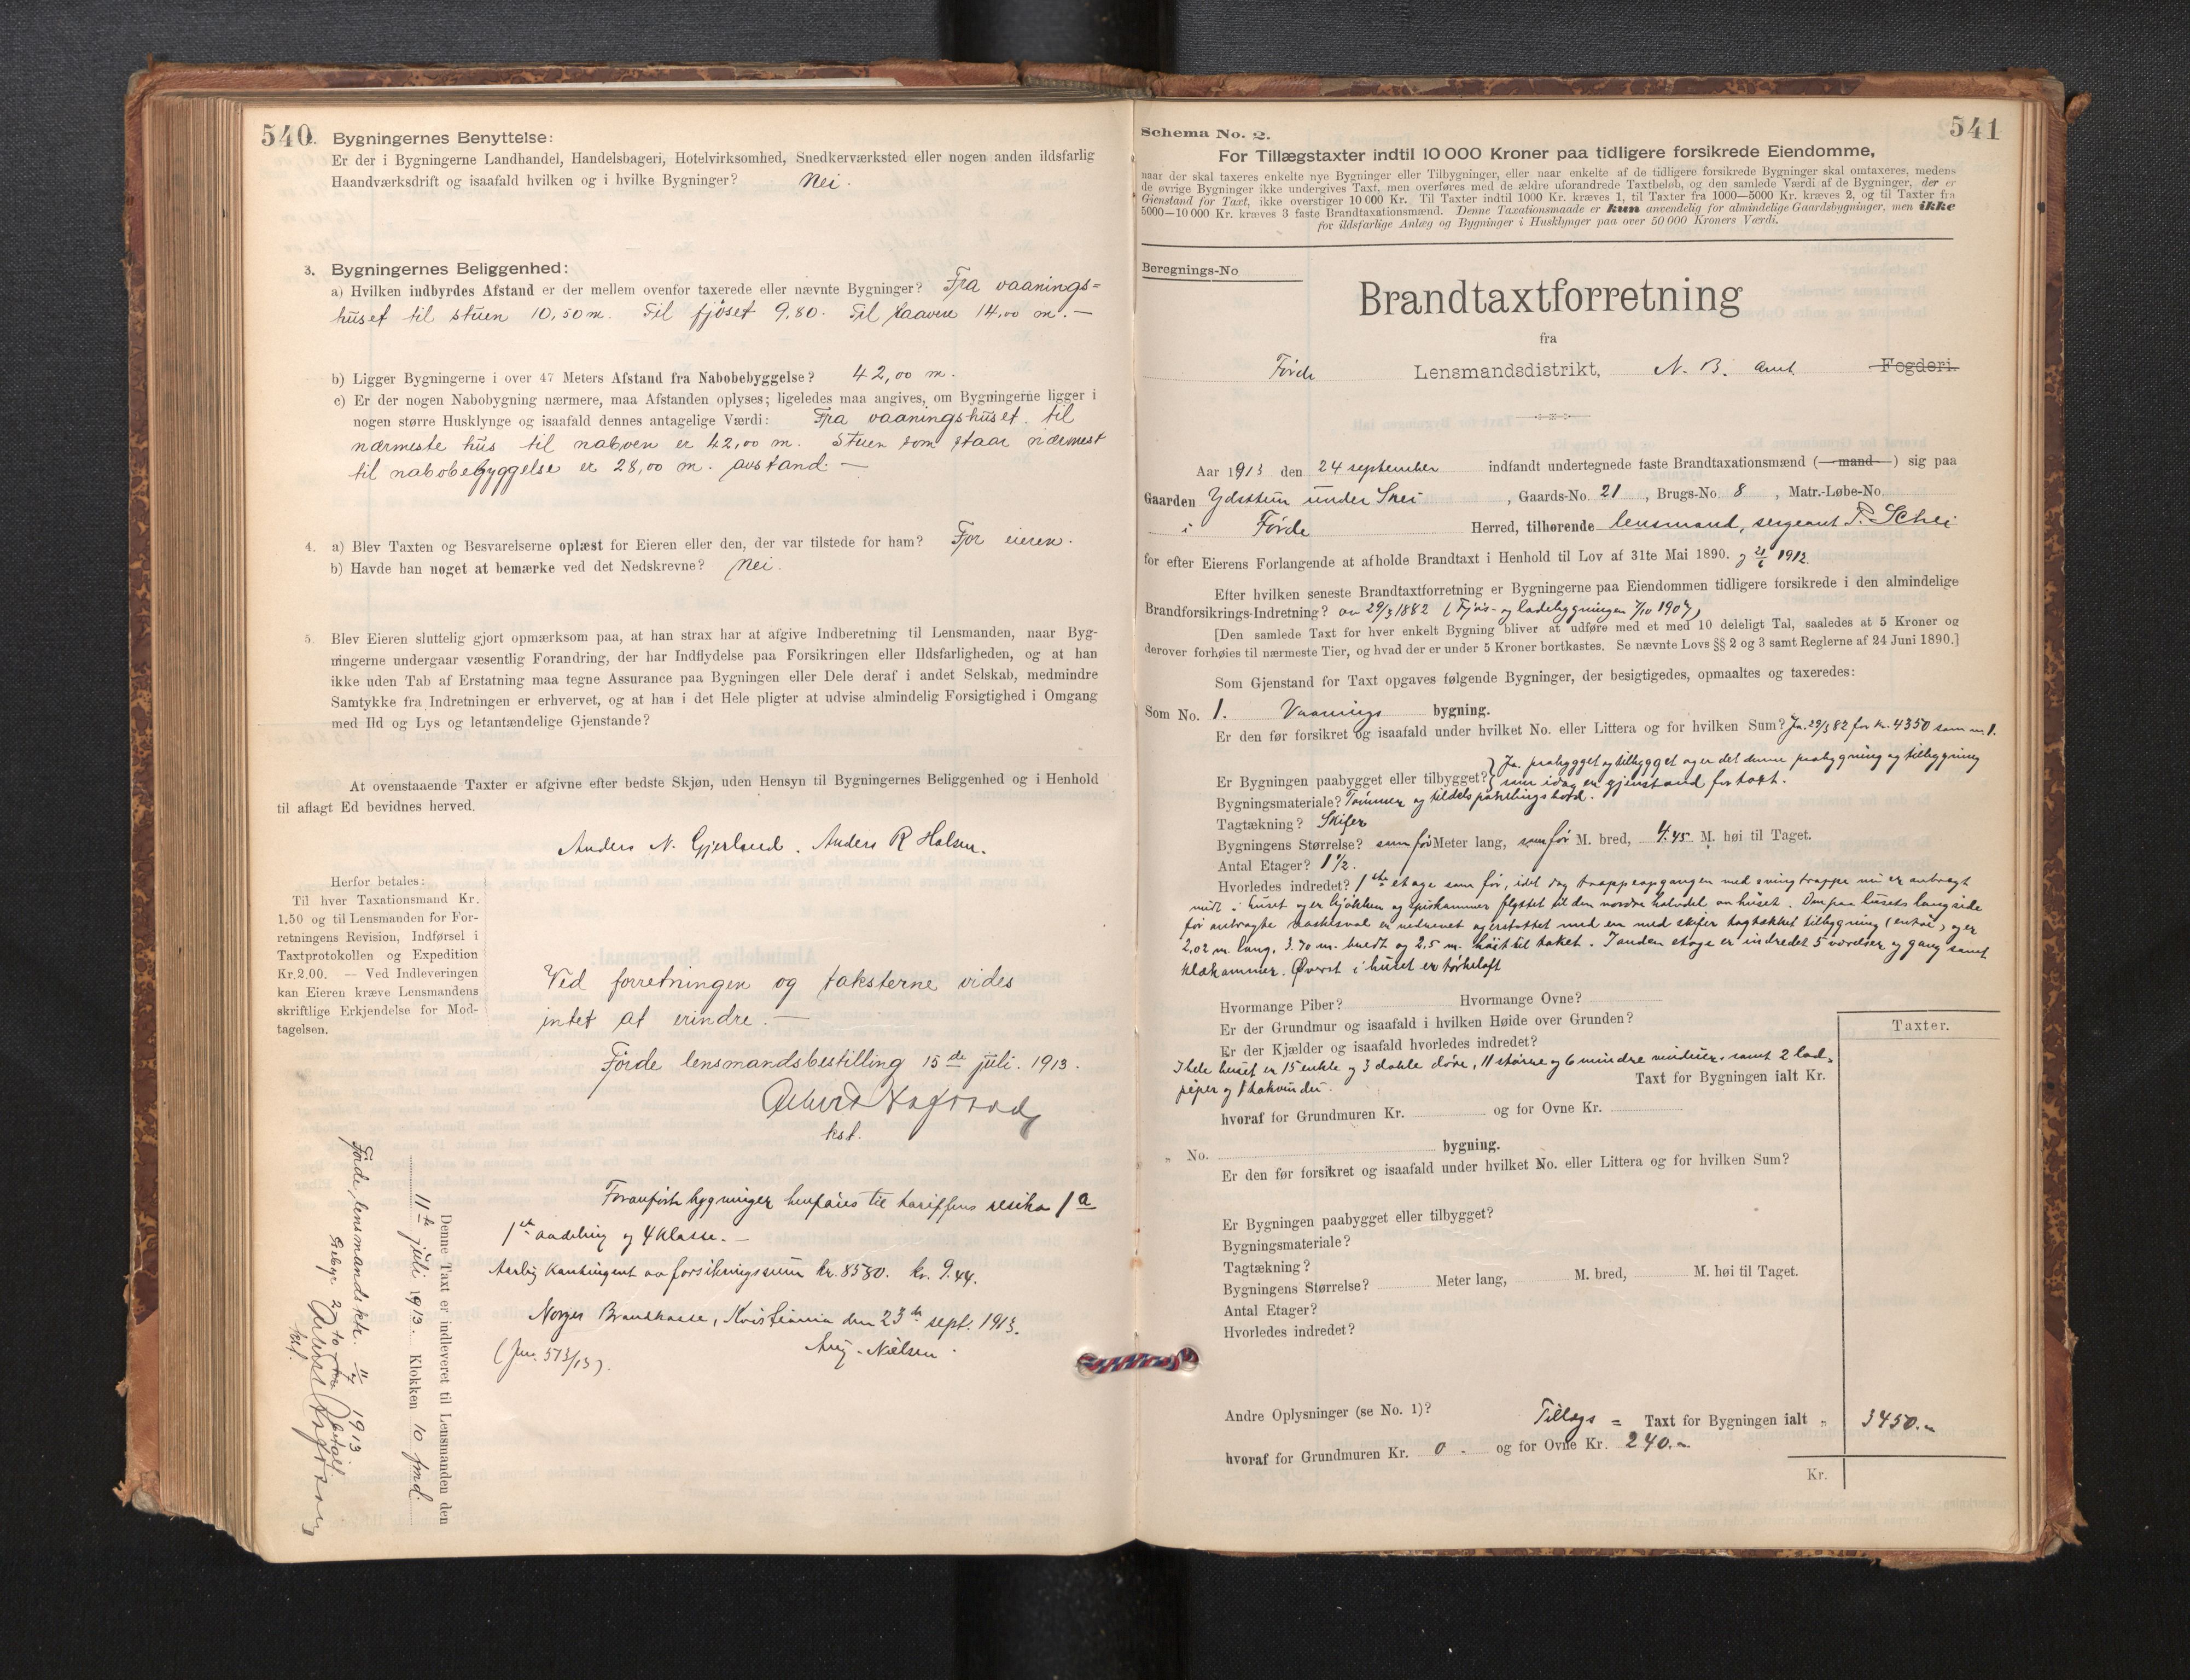 540
2. Bygningernes Benyttelse:
Er der i Bygningerne Landhandel, Handelsbageri, Hotelvirksomhed, Snedkerværksted eller nogen anden ildsfarlig
Haandværksdrift og isaafald hvilken og i hvilke Bygninger? Nei.
3. Bygningernes Beliggenhed:
a) Hvilken indbyrdes Afstand er der mellem ovenfor taxerede eller nævnte Bygninger? Fra vaanings=
huset til stuen 10,50 m. Til fjøset 9.80. Til 14,00 m. —
b) Ligger Bygningerne i over 47 Meters Afstand fra Nabobebyggelse? 42,00 m.
c) Er der nogen Nabobygning nærmere, maa Afstanden oplyses; ligeledes maa angives, om Bygningerne ligger i
nogen større Husklynge og isaafald dennes antagelige Værdi: Fra vaaningshuset til
nærmeste hus til naboen er 42,00 m. Stuen som staar nærmest
til nabobebyggelse er 28,00 m. avstand. —
4. a) Blev Taxten og Besvarelserne oplæst for Eieren eller den, der var tilstede for ham? For eieren.
b) Havde han noget at bemærke ved det Nedskrevne? Nei.
5. Blev Eieren sluttelig gjort opmærksom paa, at han strax har at afgive Indberetning til Lensmanden, naar Byg-
ningerne undergaar væsentlig Forandring, der har Indflydelse paa Forsikringen eller Ildsfarligheden, og at han
ikke uden Tab af Erstatning maa tegne Assurance paa Bygningen eller Dele deraf i andet Selskab, medmindre
Samtykke fra Indretningen er erhvervet, og at han i det Hele pligter at udvise almindelig Forsigtighed i Omgang
med Ild og Lys og letantændelige Gjenstande?
At ovenstaaende Taxter er afgivne efter bedste Skjøn, uden Hensyn til Bygningernes Beliggenhed og i Henhold
til aflagt Ed bevidnes herved.
Anders N. Gjerland. Anders R Halsen.
Herfor betales:
Til hver Taxationsmand Kr.
1,50 og til Lensmanden for For-
retningens Revision, Indførsel i
Taxtprotokollen og Expedition
Kr. 2,00. — Ved Indleveringen
kan Eieren kræve Lensmandens
skriftlige Erkjendelse for Mod-
tagelsen.
Ved forretningen og taksterne vides
intet at erindre. —
Førde lensmandsbestilling 15de juli. 1913.
kst.
Denne Taxt er indleveret til Lensmanden den
11te juli 1913. Klokken 10 fmd.
Førde lensmandsktr. 11/7 1913
Gebyr 2
kst.
Foranførte bygninger henføres til tariffens resiko 1 a
1ste avdeling og 4 klasse. —
Aarlig kontingent av forsikringssum kr. 8580. kr. 9.44.
Norges Brandkasse, Kristiania den 23de sept. 1913.
Aug. Nielsen.
(Jnr. 573/13).
541
Schema No. 2.
For Tillægstaxter indtil 10 000 Kroner paa tidligere forsikrede Eiendomme,
naar der skal taxeres enkelte nye Bygninger eller Tilbygninger, eller naar enkelte af de tidligere forsikrede Bygninger skal omtaxeres, medens
de øvrige Bygninger ikke undergives Taxt, men overføres med de ældre uforandrede Taxtbeløb, og den samlede Værdi af de Bygninger, der er
Gjenstand for Taxt, ikke overstiger 10 000 Kr. Til Taxter indtil 1000 Kr. kræves 1, til Taxter fra 1000—5000 Kr. kræves 2, og til Taxter fra
5000—10 000 Kr. kræves 3 faste Brandtaxationsmænd. Denne Taxationsmaade er kun anvendelig for almindelige Gaardsbygninger, men ikke
for ildsfarlige Anlæg og Bygninger i Husklynger paa over 50 000 Kroners Værdi.
Beregnings-No
Brandtaxtforretning
fra
Førde Lensmandsdistrikt, N. B. amt Fogderi.
Aar 1913 den 24 september indfandt undertegnede faste Brandtaxationsmænd (—mand—) sig paa
Gaarden Ydstun under Skei, Gaards-No. 21, Brugs-No. 8, Matr.-Løbe-No.
i Førde Herred, tilhørende lensmand, sergeant P. Schei
for efter Eierens Forlangende at afholde Brandtaxt i Henhold til Lov af 31te Mai 1890. og 21/6 1912.
Efter hvilken seneste Brandtaxtforretning er Bygningerne paa Eiendommen tidligere forsikrede i den almindelige
Brandforsikrings-Indretning? av 29/3 1882 (Fjøs- og ladebygningen 7/10 1907)
[Den samlede Taxt for hver enkelt Bygning bliver at udføre med et med 10 deleligt Tal, saaledes at 5 Kroner og
derover forhøies til nærmeste Tier, og hvad der er under 5 Kroner bortkastes. Se nævnte Lovs §§ 2 og 3 samt Reglerne af 24 Juni 1890.]
Som Gjenstand for Taxt opgaves følgende Bygninger, der besigtigedes, opmaaltes og taxeredes:
Som No. 1. Vaanings bygning.
Er den før forsikret og isaafald under hvilket No. eller Littera og for hvilken Sum? Ja. 29/3 82 for kr. 4350 som nr 1.
Er Bygningen paabygget eller tilbygget? Ja. paabygget og tilbygget og er det denne paabygning og tilbygning
som idag er gjenstand for takst.
Bygningsmateriale? Tømmer og tildels panelingsbord.
Tagtækning? Skifer
Bygningens Størrelse? som før Meter lang, som før M. bred, 4.45 M. høi til Taget.
Antal Etager? 1 1/2.
Hvorledes indredet? 1ste etage som før, idet dog trappeopgangen med svingtrappe nu er anbragt
midt i huset og er kjøkken og spiskammer flyttet til den nordre halvdel av huset. Den paa husets langside
før anbragte er nedrevet og erstattet med en med skifer tagtækket tilbygning (entré), og er
2,02 m. lang, 3.70 m. bredt og 2,5 m. høit til taket. I anden etage er indredet 5 værelser og gang samt
klækammer. Øverst i huset er tørkeloft
Hvormange Piber? Hvormange Ovne?
Er der Grundmur og isaafald i hvilken Høide over Grunden?
Er der Kjælder og isaafald hvorledes indredet?
I hele huset er 15 enkle og 3 doble døre, 11 større og 6 mindre vinduer, samt 2
piper og 1 takvindu.
Taxter.
Taxt for Bygningen ialt Kr.
hvoraf for Grundmuren Kr. og for Ovne Kr.
„ No. bygning.
Er den før forsikret og isaafald under hvilket No. eller Littera og for hvilken Sum?
Er Bygningen paabygget eller tilbygget?
Bygningsmateriale?
Tagtækning?
Bygningens Størrelse? Meter lang, M. bred, M. høi til Taget.
Antal Etager?
Hvorledes indredet?
Andre Oplysninger (se No. 1)? Tillægs = Taxt for Bygningen ialt „ 3450.-
hvoraf for Grundmuren Kr. 0 - og for Ovne Kr. 240.-
Kr.